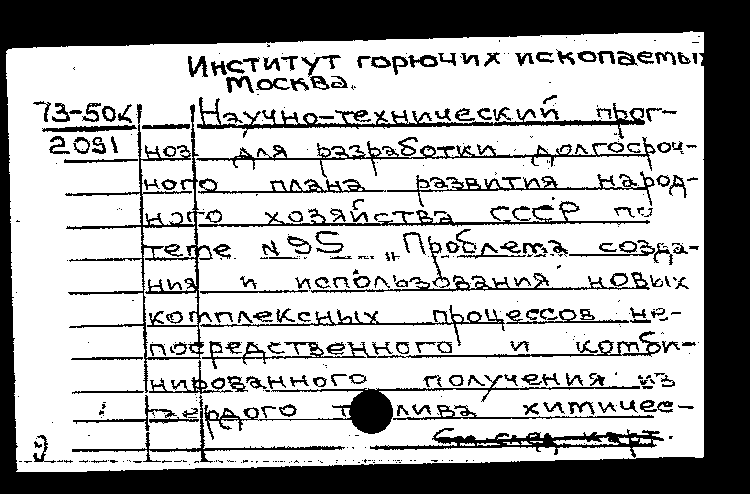 Институт горючих ископаемых
Москва.
73-502 Научно-технический прог-
2091 ноз для разработки долгосроч-
ного плана развития народ-
ного хозяйства СССР по
теме N 95 „Проблема созда-
ния и использования новых
комплексных процессов не-
посредственного и комби-
нированного получения из
твердого топлива химичес-
См. след. карт.
9